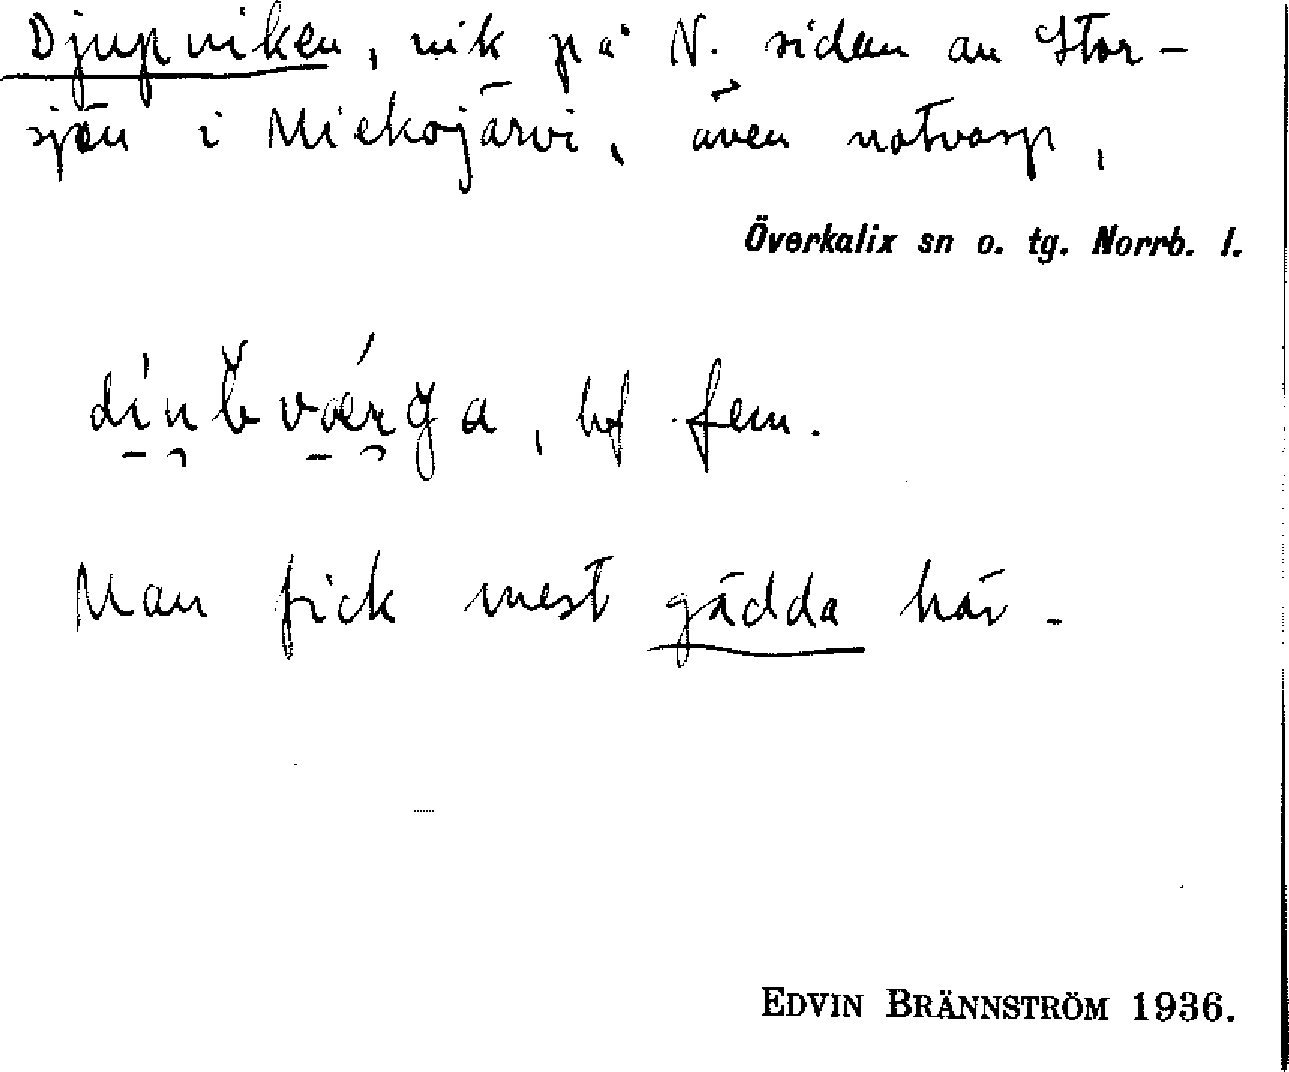 Djupviken, vik på N. sidan av Stor-
sjön i Miekojärvi, även notvarp,
Överkalix sn o. tg. Norrb. l.
, bf fem.
Man fick mest gädda här.
EDVIN BRÄNNSTRÖM 1936.